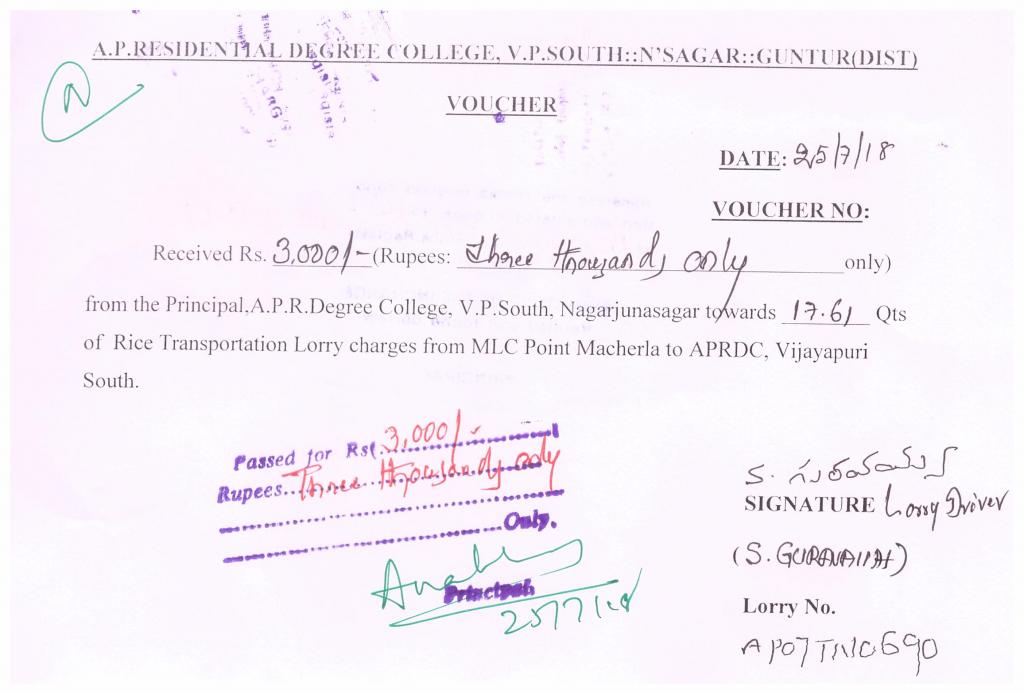 A.P.RESIDENTIAL DEGREE COLLEGE, V.P.SOUTH::N'SAGAR::GUNTUR(DIST)
VOUCHER
DATE: 25/7/18
VOUCHER NO:
Received Rs. 3,000/- (Rupees: Three thousands only only)
from the Principal,A.P.R.Degree College, V.P.South, Nagarjunasagar towards 17.61 Qts
of Rice Transportation Lorry charges from MLC Point Macherla to APRDC, Vijayapuri
South.
Passed for Rs. 3,000/-
Rupees Three thousands only
Only.
Principal
25/7/18
SIGNATURE Lorry Driver
(S. GURAVAIAH)
Lorry No.